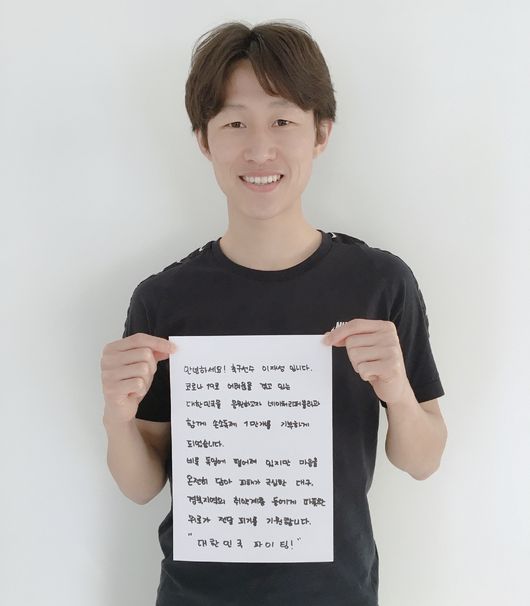 안녕하세요! 축구선수 이재성 입니다.
코로나 19로 어려움을 겪고 있는
대한민국을 응원하고자 네이처리퍼블릭과
함께 손소독제 1만개를 기부하게
되었습니다.
비록 독일에 떨어져 있지만 마음을
온전히 담아 피해가 극심한 대구,
경북지역의 취약계층 들에게 따뜻한
위로가 전달 되기를 기원합니다.
"대한민국 파이팅!"